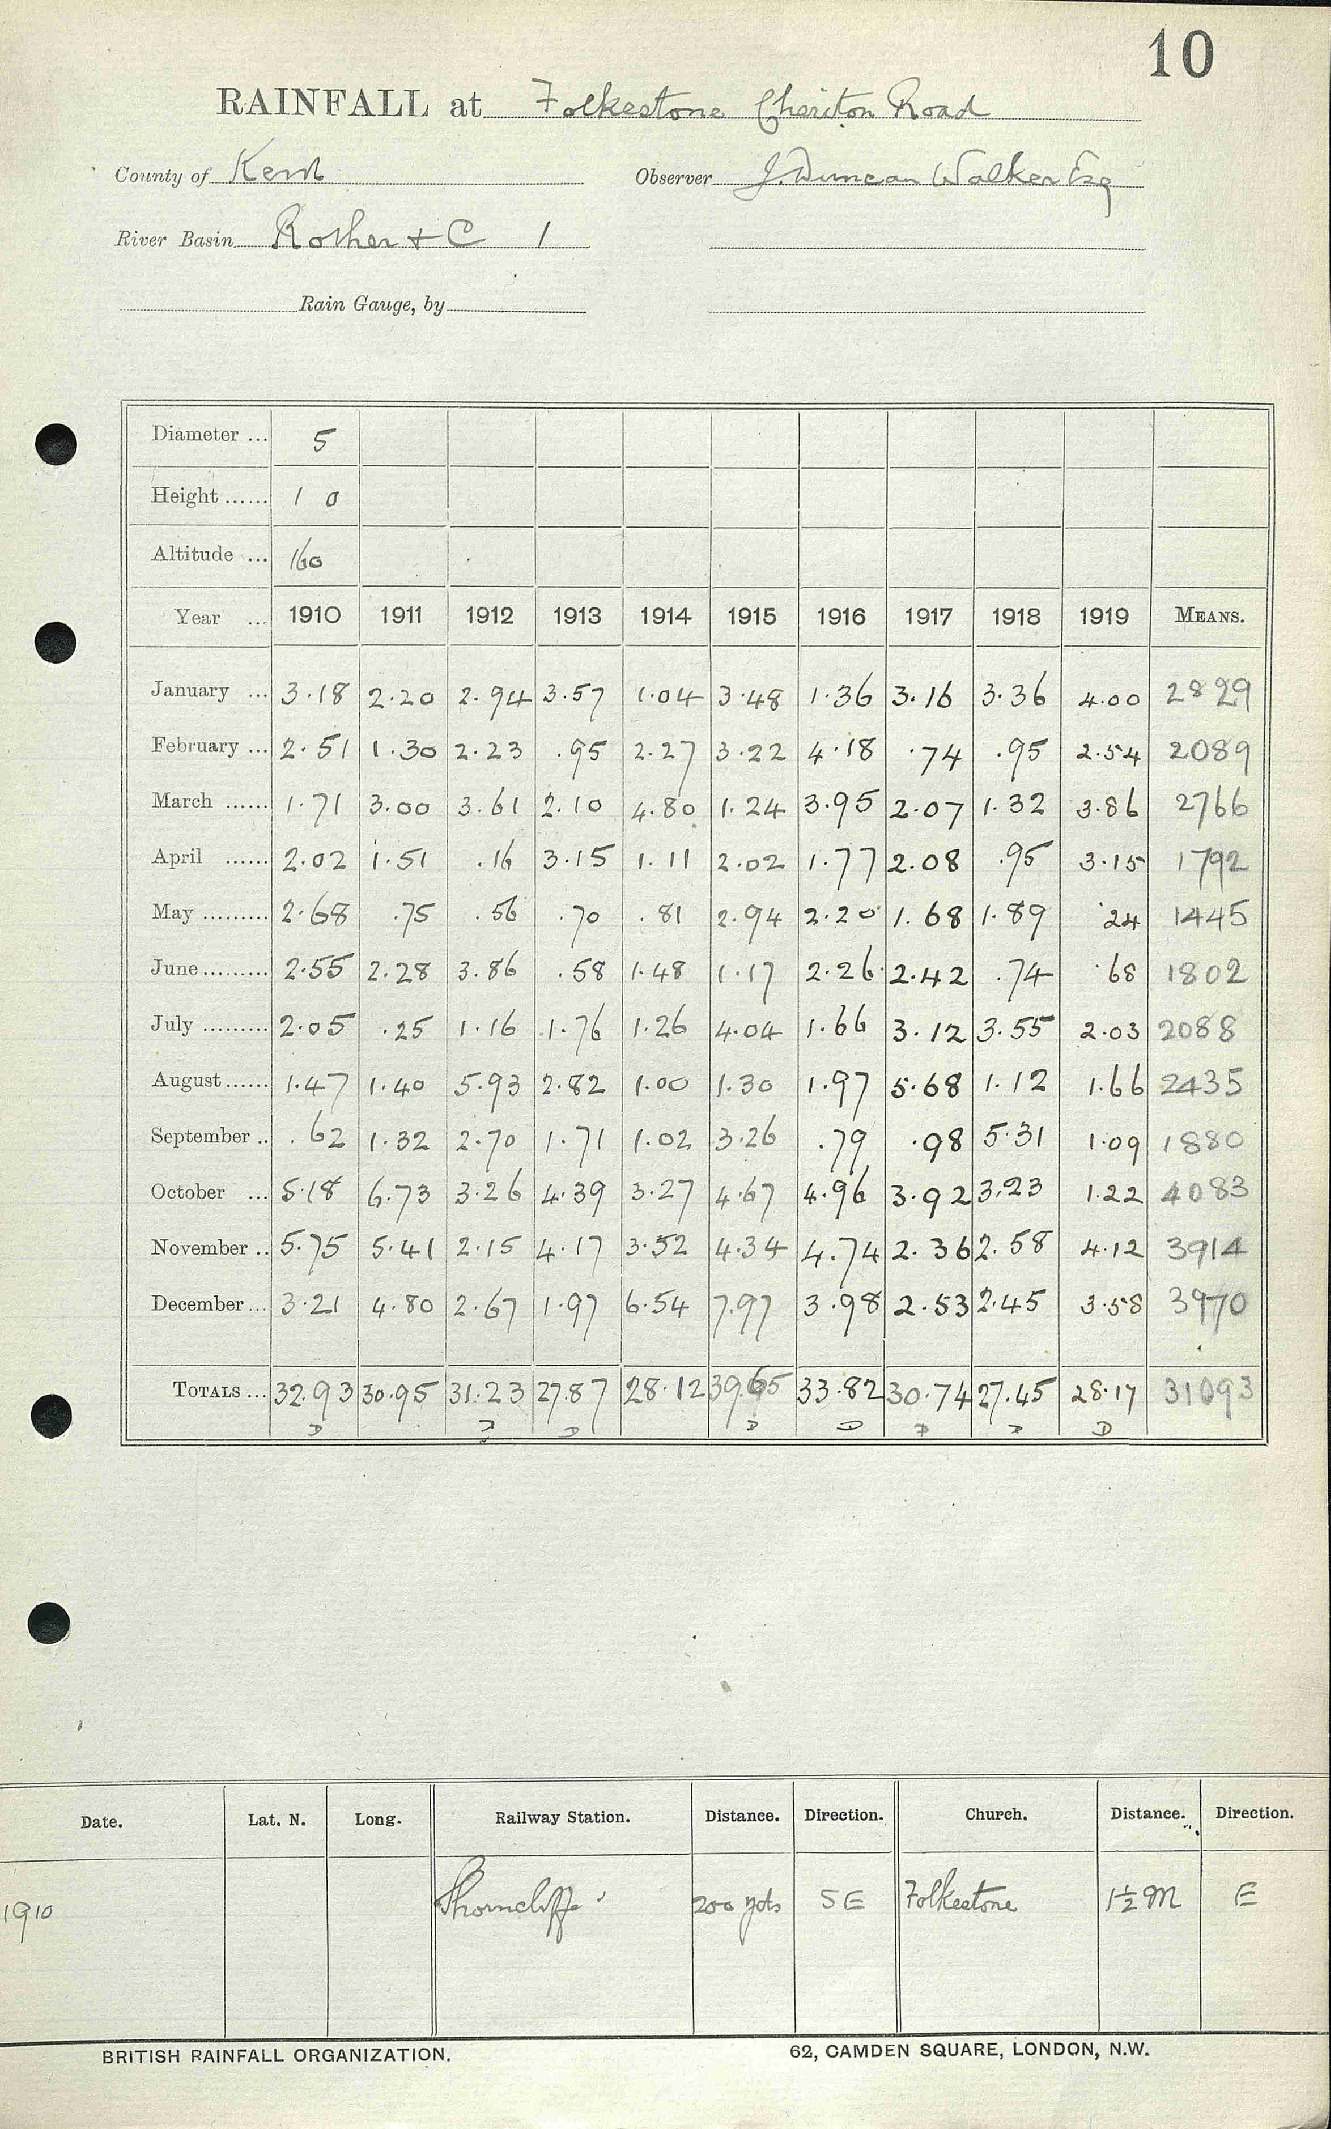 10
RAINFALL at Folkestone Cheriton Road
County of Kent Observer J. Duncan Walker Esq
River Basin Rother + C 1
Rain Gauge, by
Diameter ... 5
Height ...... 1 0
Altitude ... 160
Year ... 1910 1911 1912 1913 1914 1915 1916 1917 1918 1919 MEANS.
January ... 3.18 2.20 2.94 3.57 1.04 3.48 1.36 3.16 3.36 4.00 2829
February ... 2.51 1.30 2.23 .95 2.27 3.22 4.18 .74 .95 2.54 2089
March ...... 1.71 3.00 3.61 2.10 4.80 1.24 3.95 2.07 1.32 3.86 2766
April ...... 2.02 1.51 .16 3.15 1.11 2.02 1.77 2.08 .95 3.15 1792
May ......... 2.68 .75 .56 .70 .81 2.94 2.20 1.68 1.89 .24 1445
June ......... 2.55 2.28 3.86 .58 1.48 1.17 2.26 2.42 .74 .68 1802
July ......... 2.05 .25 1.16 1.76 1.26 4.04 1.66 3.12 3.55 2.03 2088
August ...... 1.47 1.40 5.93 2.82 1.00 1.30 1.97 5.68 1.12 1.66 2435
September .. .62 1.32 2.70 1.71 1.02 3.26 .79 .98 5.31 1.09 1880
October ... 5.18 6.73 3.26 4.39 3.27 4.67 4.96 3.92 3.23 1.22 4083
November .. 5.75 5.41 2.15 4.17 3.52 4.34 4.74 2.36 2.58 4.12 3914
December ... 3.21 4.80 2.67 1.97 6.54 7.97 3.98 2.53 2.45 3.58 3970
TOTALS ... 32.93 30.95 31.23 27.87 28.12 39.65 33.82 30.74 27.45 28.17 31093
D D D D D D D D
Date. Lat. N. Long. Railway Station. Distance. Direction. Church. Distance. Direction.
1910 Shorncliffe 200 yds SE Folkestone 1½ M E
BRITISH RAINFALL ORGANIZATION. 62, CAMDEN SQUARE, LONDON, N.W.